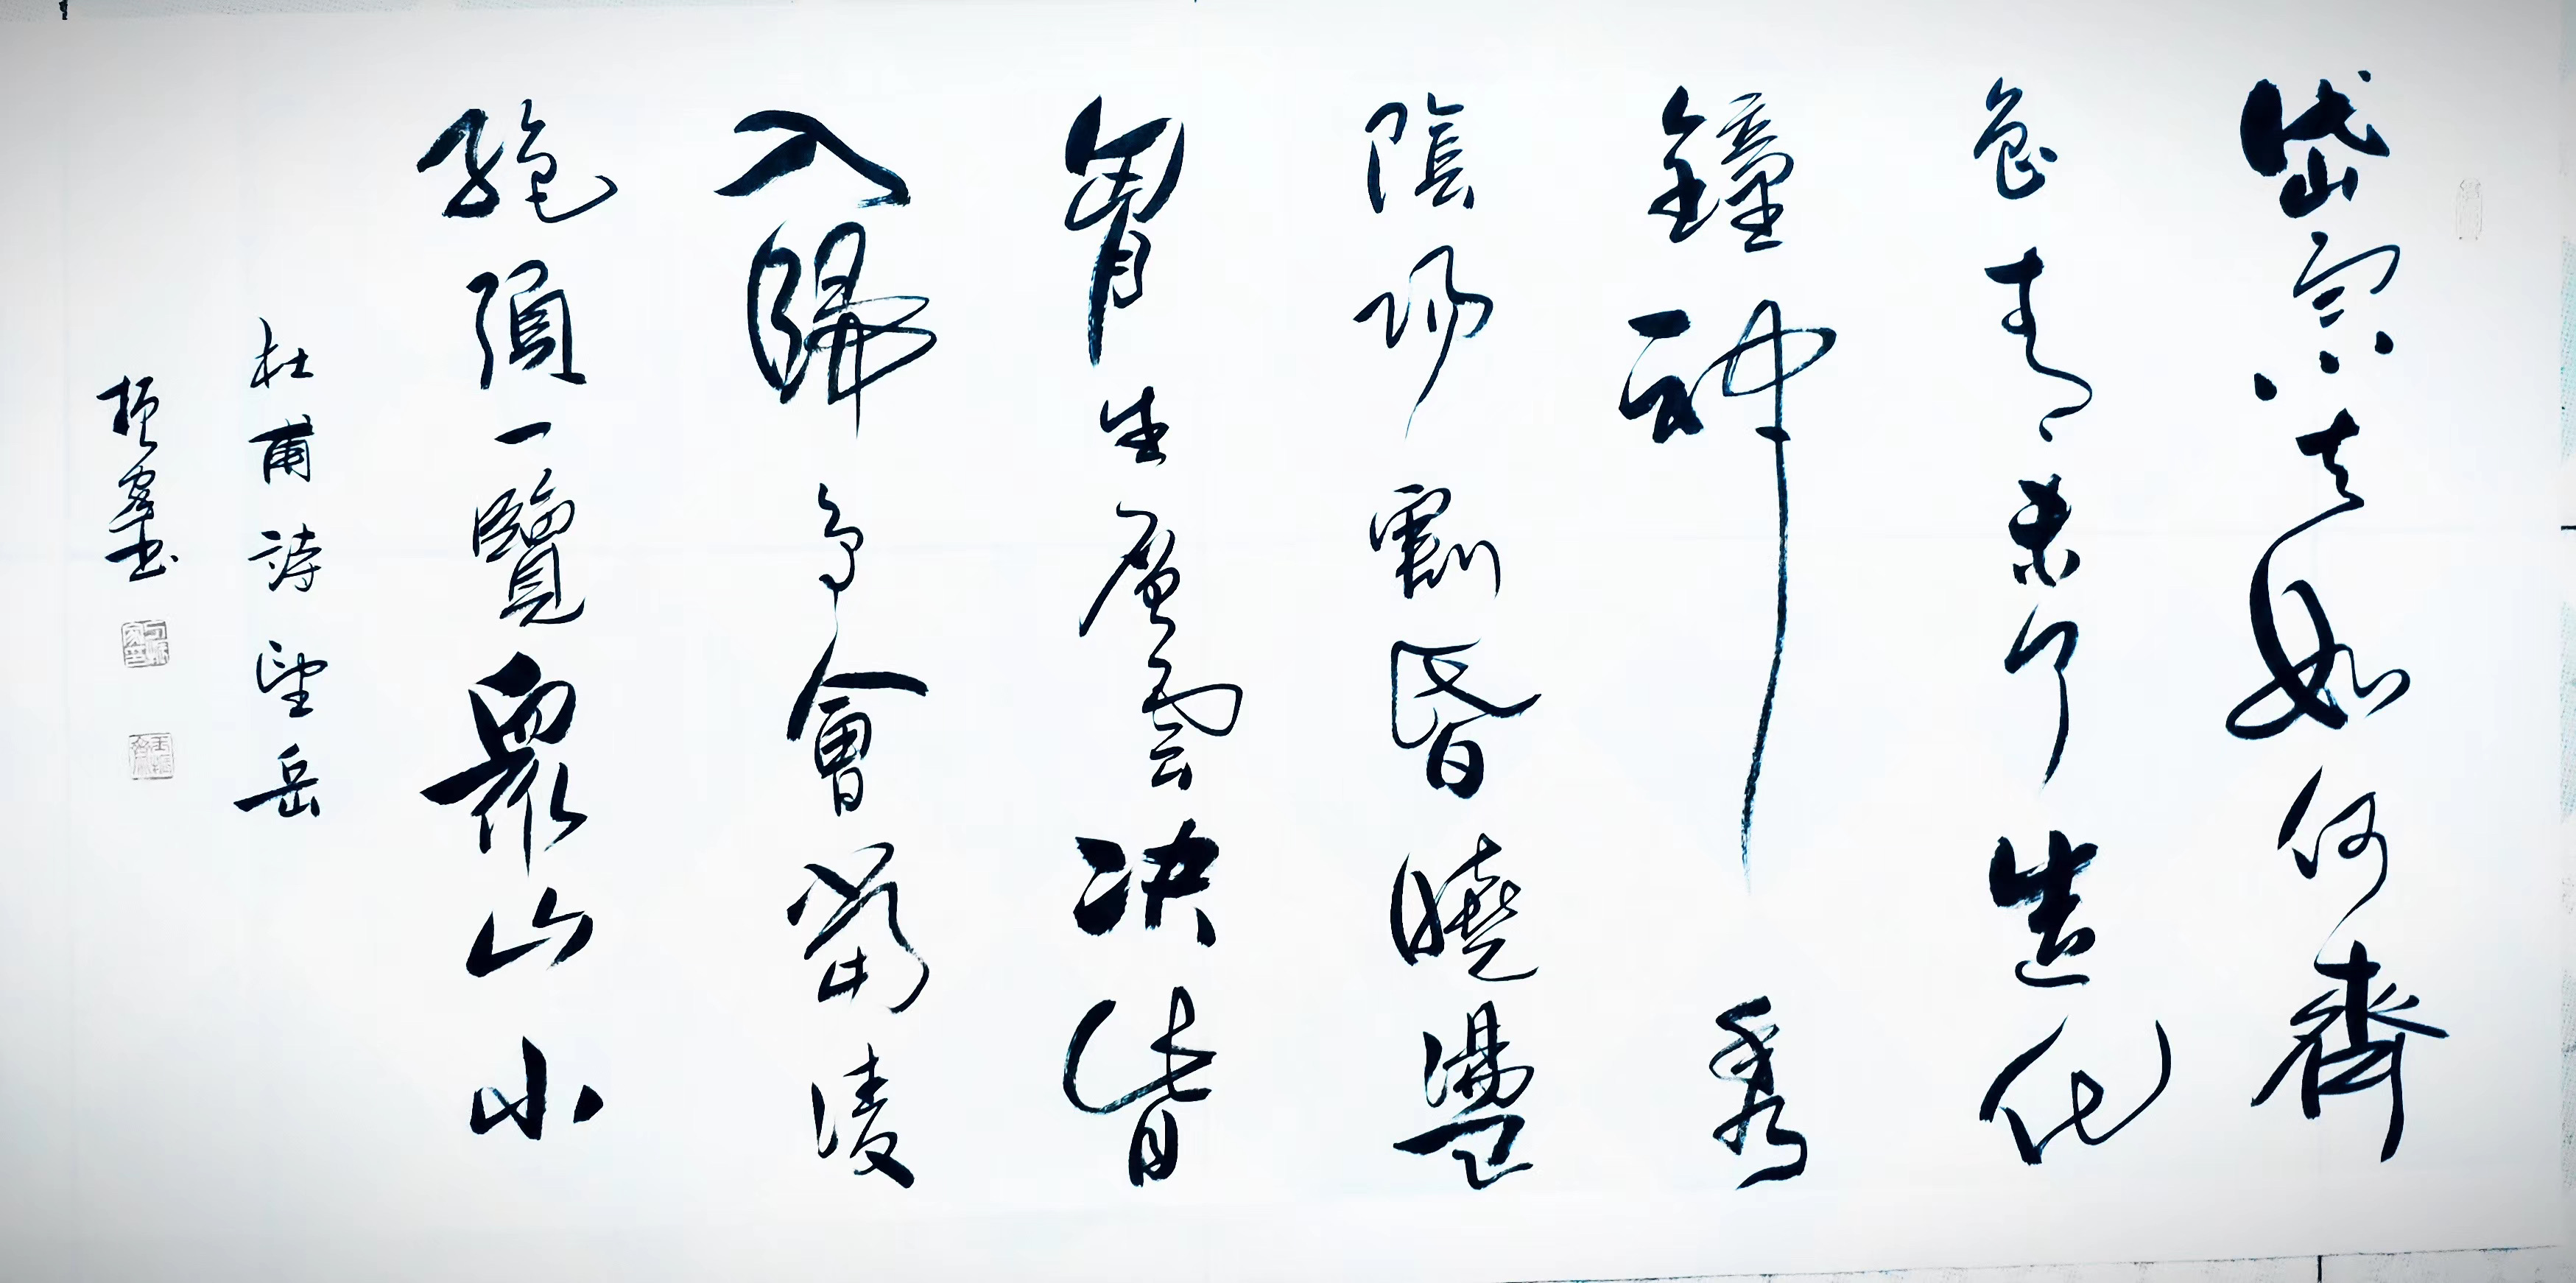 岱宗夫如何齊
魯青未了造化
鐘神秀
陰陽割昏曉盪
胷生層雲决眥
入歸鳥會當凌
絶頂一覽衆山小
杜甫詩望岳
振